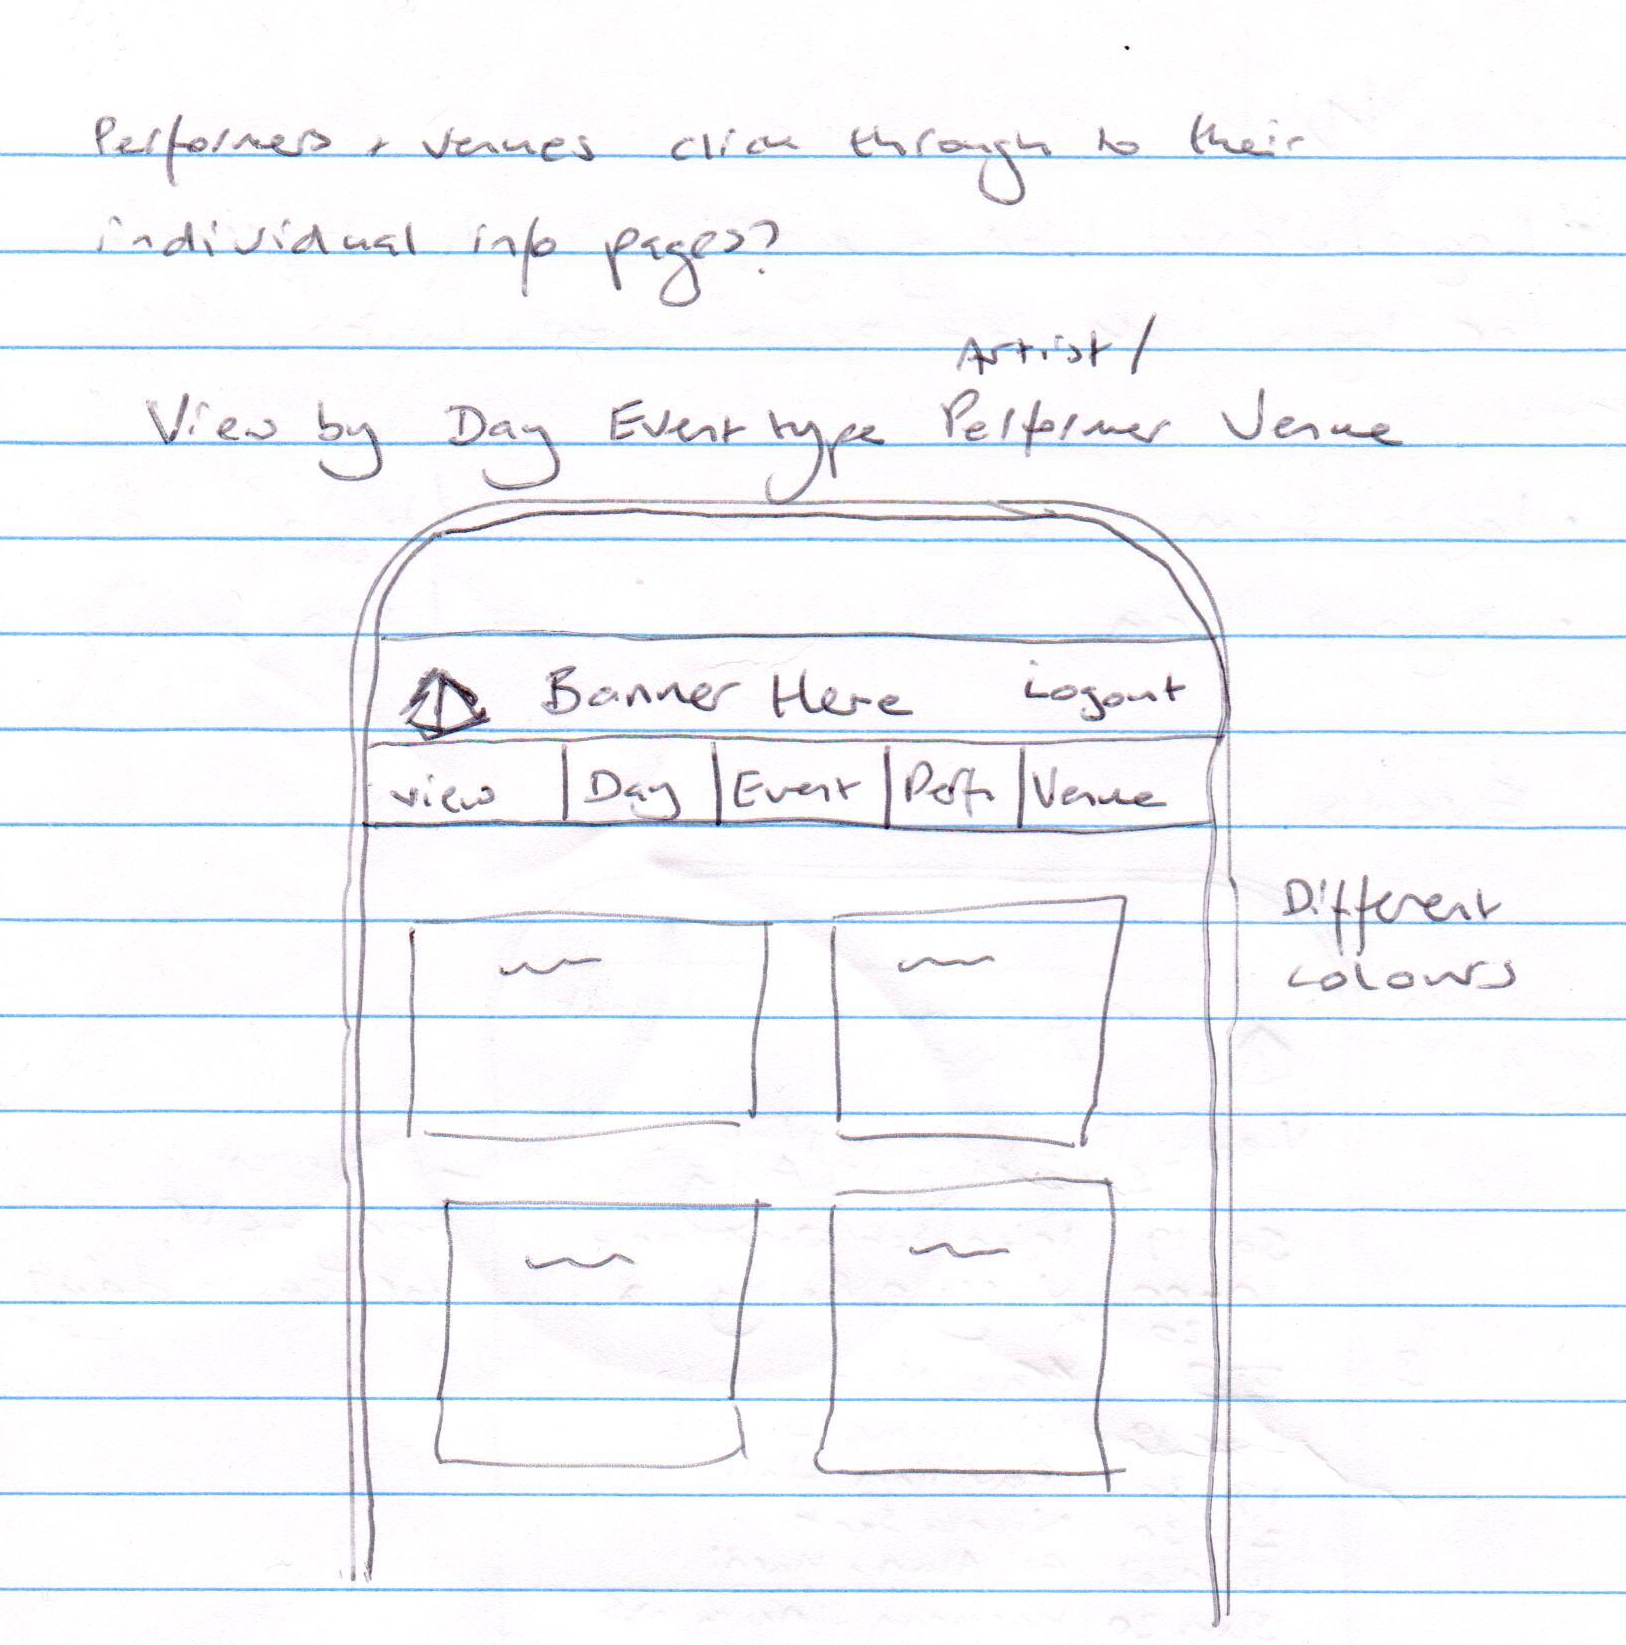 Performers + venues click through to their
individual info pages?
Artist/
View by Day Event type Performer Venue
Banner Here Logout
view Day Event Perf. Venue
Different
colours